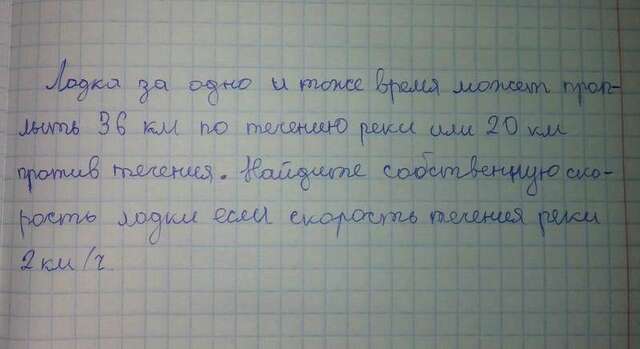 Лодка за одно и тоже время может проп-
лыть 36 км по течению реки или 20 км
против течения. Найдите собственную ско-
рость лодки если скорость течения реки
2 км/ч.